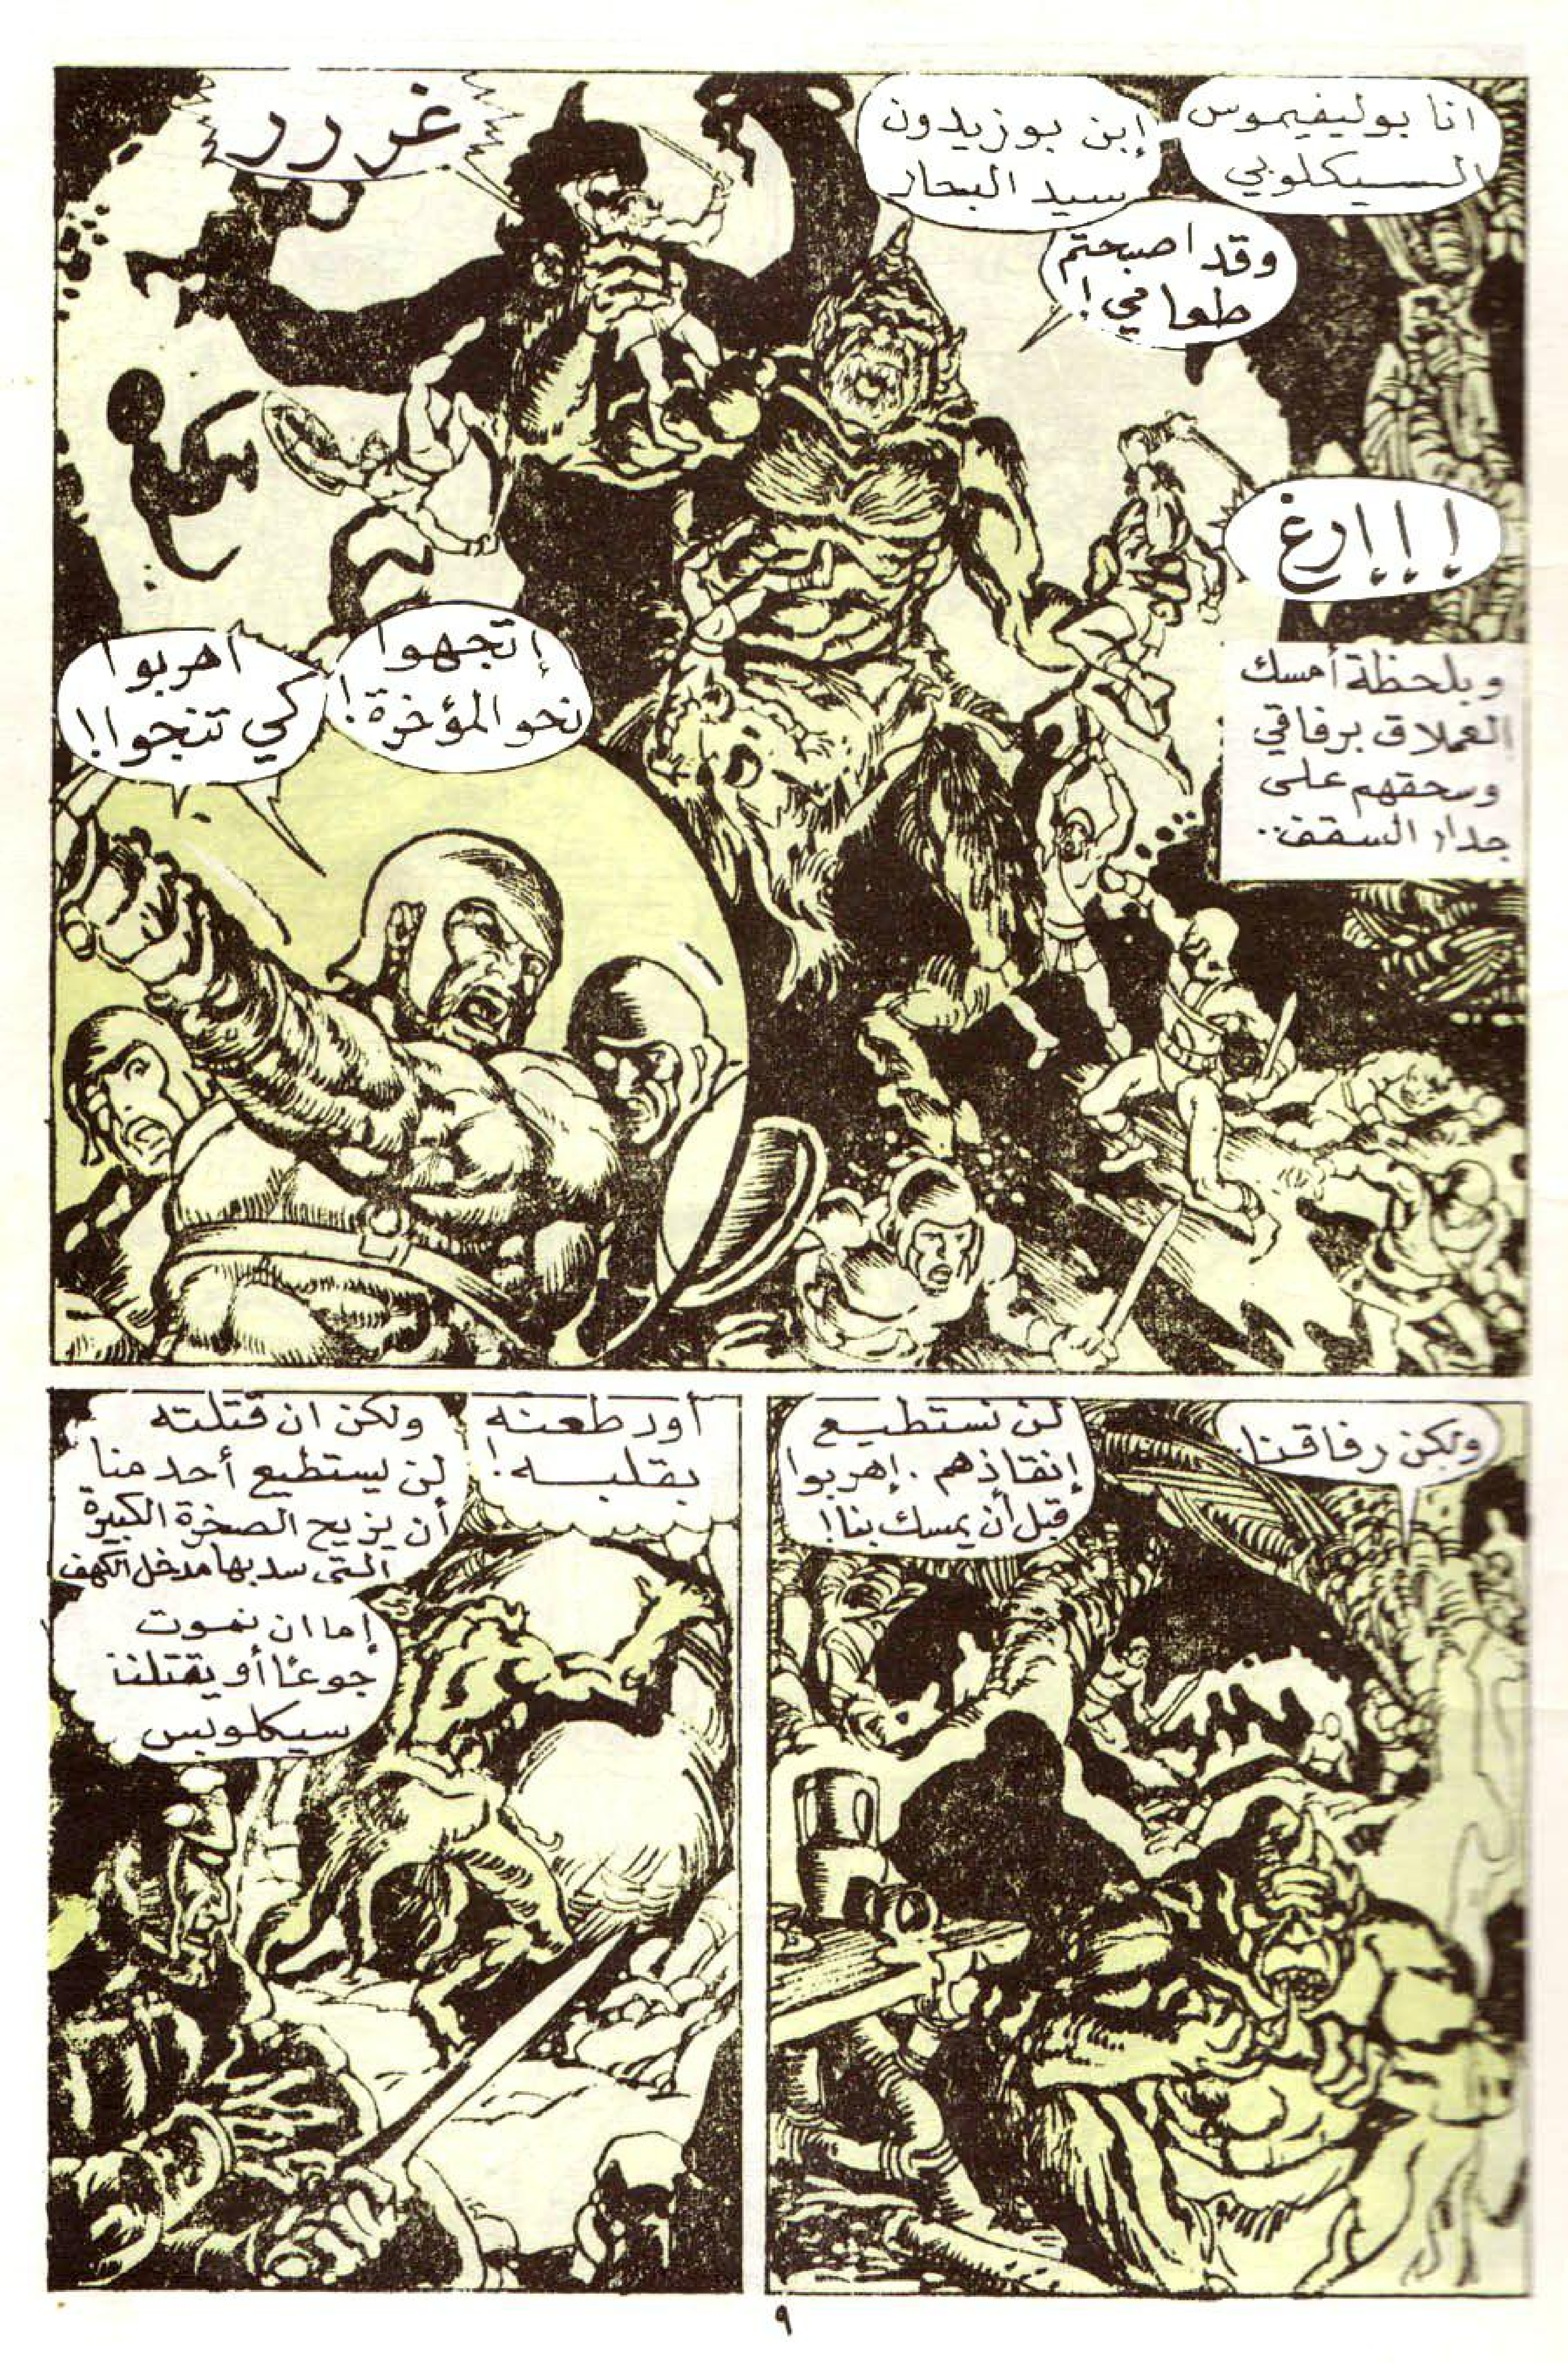 انا بوليفيموس
السيكلوبي
إبن بوزيدون
سيد البحار
وقد اصبحتم
طعامي !
غررر
إإإإرغ
وبلحظة أمسك
العملاق برفاقي
وسحقهم على
جدار السقف..
إتجهوا
نحو المؤخرة !
اهربوا
كي تنجوا !
ولكن رفاقنا.
لن نستطيع
إنقاذهم . إهربوا
قبل أن يمسك بنا !
أود طعنه
بقلبه !
ولكن ان قتلته
لن يستطيع أحد منا
أن يزيح الصخرة الكبيرة
التي سد بها مدخل الكهف
إما ان نموت
جوعًا أو يقتلنا
سيكلوبس
٩